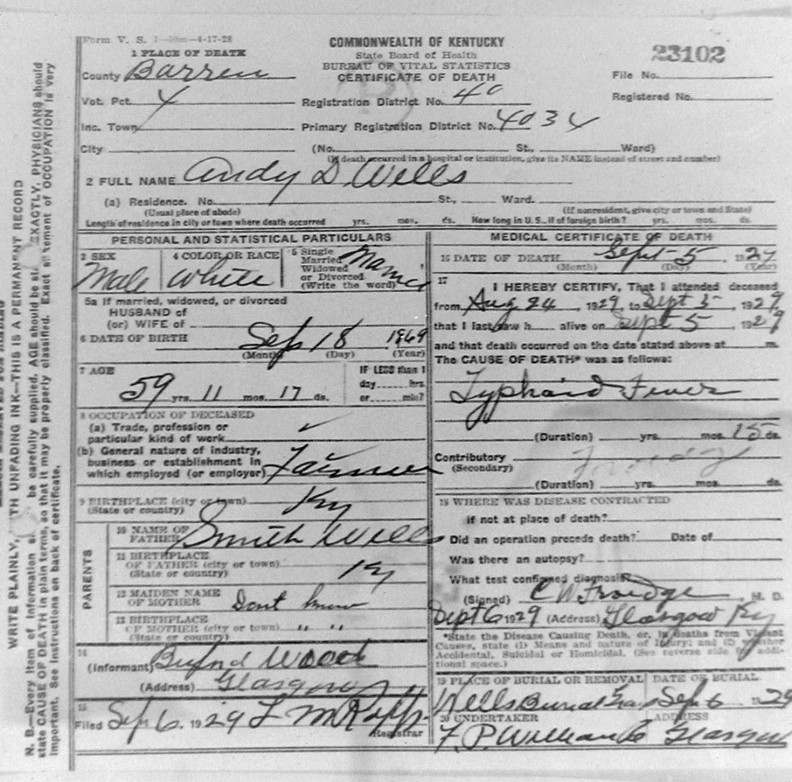 Form V. S. 1-50m-4-17-28
COMMONWEALTH OF KENTUCKY
State Board of Health
BUREAU OF VITAL STATISTICS
CERTIFICATE OF DEATH
23102
File No.
Registered No.
1 PLACE OF DEATH
County Barren
Vot. Pct. 4
Registration District No. 40
Inc. Town
Primary Registration District No. 4034
City
(No. St., Ward)
(If death occurred in a hospital or institution, give its NAME instead of street and number)
2 FULL NAME Andy D Wells
(a) Residence. No. St., Ward.
(Usual place of abode) (If nonresident, give city or town and State)
Length of residence in city or town where death occurred yrs. mos. ds. How long in U. S., if of foreign birth? yrs. mos. ds.
PERSONAL AND STATISTICAL PARTICULARS
3 SEX Male
4 COLOR OR RACE White
5 Single Married Widowed or Divorced (Write the word)
5a If married, widowed, or divorced
HUSBAND of
(or) WIFE of
6 DATE OF BIRTH Sep 18 1869
(Month) (Day) (Year)
7 AGE 59 yrs. 11 mos. 17 ds.
IF LESS than 1
day hrs.
or min?
8 OCCUPATION OF DECEASED
(a) Trade, profession or
particular kind of work
(b) General nature of industry,
business or establishment in
which employed (or employer) Farmer
9 BIRTHPLACE (city or town)
(State or country) Ky
PARENTS
10 NAME OF FATHER Smith Wells
11 BIRTHPLACE
OF FATHER (city or town)
(State or country) Ky
12 MAIDEN NAME
OF MOTHER Dont know
13 BIRTHPLACE
OF MOTHER (city or town) " "
(State or country)
14
(Informant) Wood
(Address) Glasgow
15
Filed Sep 6, 1929
Registrar
MEDICAL CERTIFICATE OF DEATH
16 DATE OF DEATH Sept 5 1929
(Month) (Day) (Year)
17
I HEREBY CERTIFY, That I attended deceased
from Aug 24, 1929 to Sept 5, 1929
that I last saw h alive on Sept 5, 1929
and that death occurred on the date stated above at m.
The CAUSE OF DEATH* was as follows:
Typhoid Fever
(Duration) yrs. mos. 15 ds.
Contributory
(Secondary)
(Duration) yrs. mos. ds.
18 WHERE WAS DISEASE CONTRACTED
if not at place of death?
Did an operation precede death? Date of
Was there an autopsy?
What test confirmed diagnosis?
(Signed) C W Froedge M. D.
Sept 6 1929 (Address) Glasgow Ky
*State the Disease Causing Death, or, in deaths from Violent
Causes, state (1) Means and nature of Injury; and (2) whether
Accidental, Suicidal or Homicidal. (See reverse side for addi-
tional space.)
19 PLACE OF BURIAL OR REMOVAL DATE OF BURIAL
Wells Burial Sep 6 1929
20 UNDERTAKER ADDRESS
Glasgow
WRITE PLAINLY, WITH UNFADING INK—THIS IS A PERMANENT RECORD
N. B.—Every item of information be carefully supplied. AGE should be EXACTLY, PHYSICIANS should
state CAUSE OF DEATH in plain terms, so that it may be properly classified. Exact statement of OCCUPATION is very
important. See instructions on back of certificate.